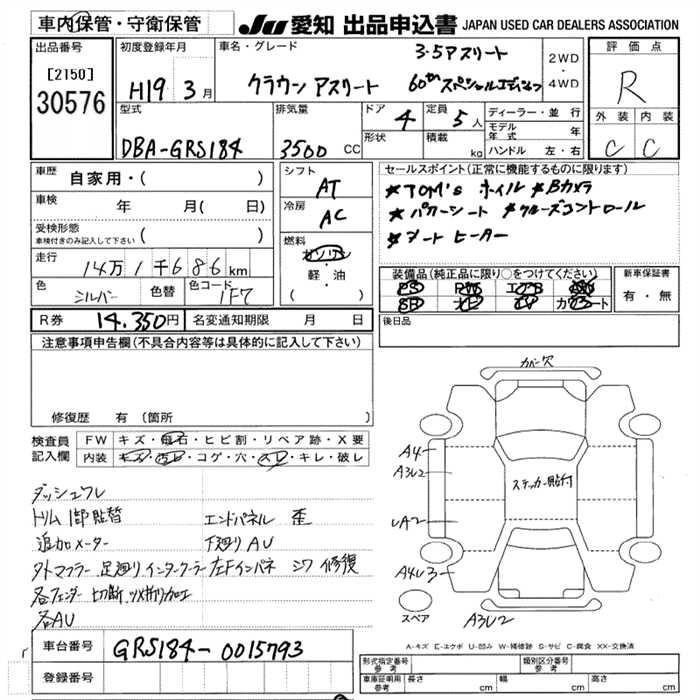 車内保管・守衛保管
JU 愛知 出品申込書 JAPAN USED CAR DEALERS ASSOCIATION
出品番号
[2150]
30576
初度登録年月
H19 3月
車名・グレード
3.5アスリート
クラウン アスリート 60th スペシャルエディション
2WD
・
4WD
評価点
R
外装 内装
C C
型式
DBA-GRS184
排気量
3500 CC
ドア
4
定員
5人
形状
積載
kg
ディーラー・並行
モデル年式 年
ハンドル 左・右
車歴
自家用・( )
車検
年 月( 日)
受検形態
車検付きのみ記入して下さい
( )
走行
14万1千686km
色
シルバー
色替
色コード
1F7
シフト
AT
冷房
AC
燃料
ガソリン
・
軽・油
( )
セールスポイント(正常に機能するものに限ります)
★TOM's ホイル ★Bカメラ
★パワーシート ★クルーズコントロール
★シートヒーター
装備品(純正品に限り○をつけてください)
PS PW エアB
SR ナビ TV カワシート
新車保証書
有・無
R券
14,350円
名変通知期限 月 日
後日品
注意事項申告欄(不具合内容等は具体的に記入して下さい)
修復歴 有(箇所
検査員記入欄
FW キズ・飛石・ヒビ割・リペア跡・X要
内装 キズ・汚レ・コゲ・穴・スレ・キレ・破レ
ダッシュワレ
トリム1部貼替
エンドパネル 歪
追加メーター
下廻りAU
タトマフラー 足廻り インタークーラー 左Fインパネ シワ 修復
各フェンダー切断 ツメ折り加工
各AU
カバー欠
A4
A3U2
UA2
A4U3
ステッカー貼付
スペア
A3U2
A-キズ E-エクボ U-凹み W-補修跡 S-サビ C-腐食 XX-交換済
車台番号
GRS184-0015793
登録番号
形式指定番号
参考
類別区分番号
参考
車庫証明用
参考
長さ cm
幅 cm
高さ cm